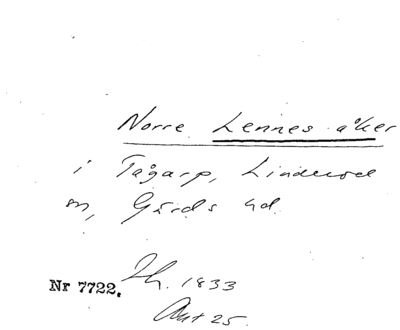 Norre Lennes åker
i Tågarp, Linderöd
sn, Gärds hd.
Nr 7722. Lh. 1833
Akt 25.